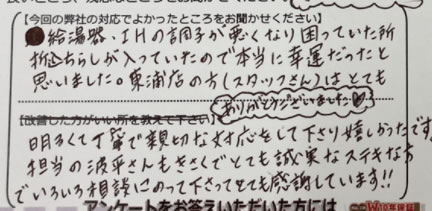 【今回の弊社の対応でよかったところをお聞かせください】
給湯器・IHの調子が悪くなり困っていた所
折込ちらしが入っていたので本当に幸運だったと
思いました。東浦店の方(スタッフさん)はとても
ありがとうございました♡
【改善した方がいい所を教えて下さい】
明るくて丁寧で親切な対応をして下さり嬉しかったです
担当の波平さんもきさくでとても誠実なステキな方
でいろいろ相談にのって下さってとても感謝しています!!
アンケートをお答えいただいた方には
W10年保証